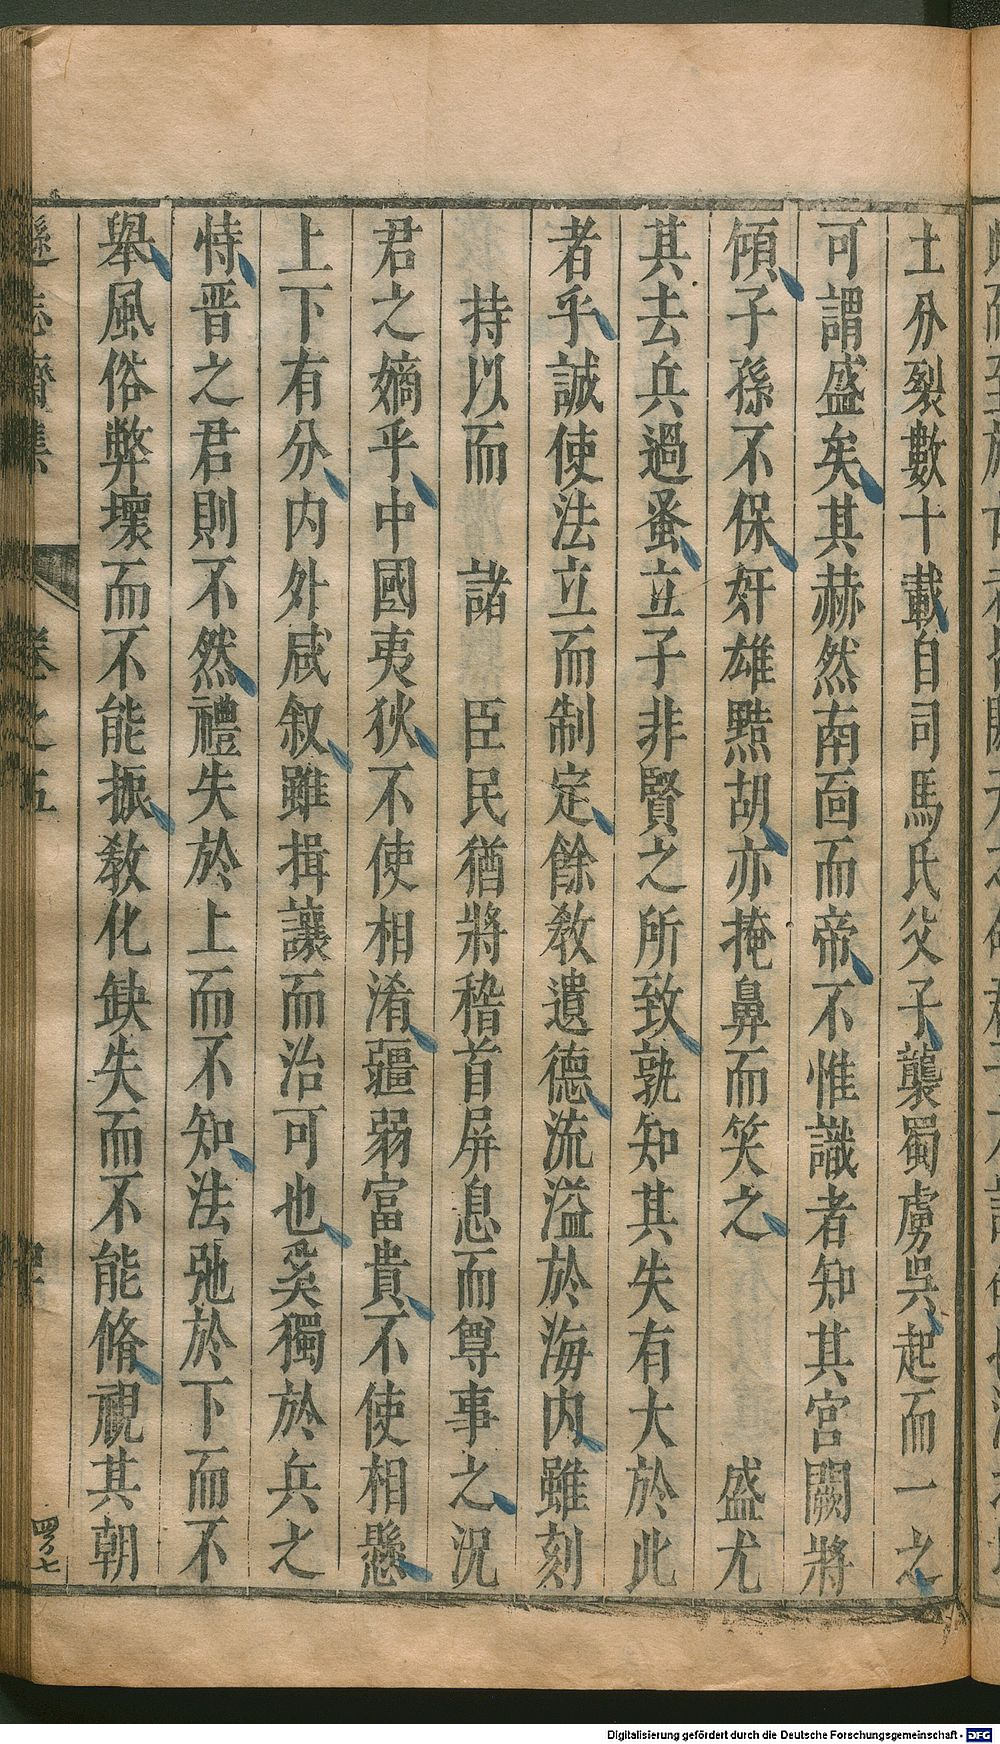 土分裂數十載自司馬氏父子襲蜀虜吳起而一之
可謂盛矣其赫然南面而帝不惟識者知其宮闕將
傾子孫不保奸雄黠胡亦掩鼻而笑之 盛尤
其去兵過蚤立子非賢之所致孰知其失有大於此
者乎誠使法立而制定餘敎遺德流溢於海內雖刻
持以而 諸 臣民猶將稽首屏息而尊事之況
君之嫡乎中國夷狄不使相淆疆弱富貴不使相懸
上下有分内外咸叙雖揖讓而治可也奚獨於兵之
恃晋之君則不然禮失於上而不知法弛於下而不
舉風俗弊壞而不能振敎化缺失而不能脩視其朝
遜志齋集 卷之五
四ノ七
Digitalisierung gefördert durch die Deutsche Forschungsgemeinschaft - DFG